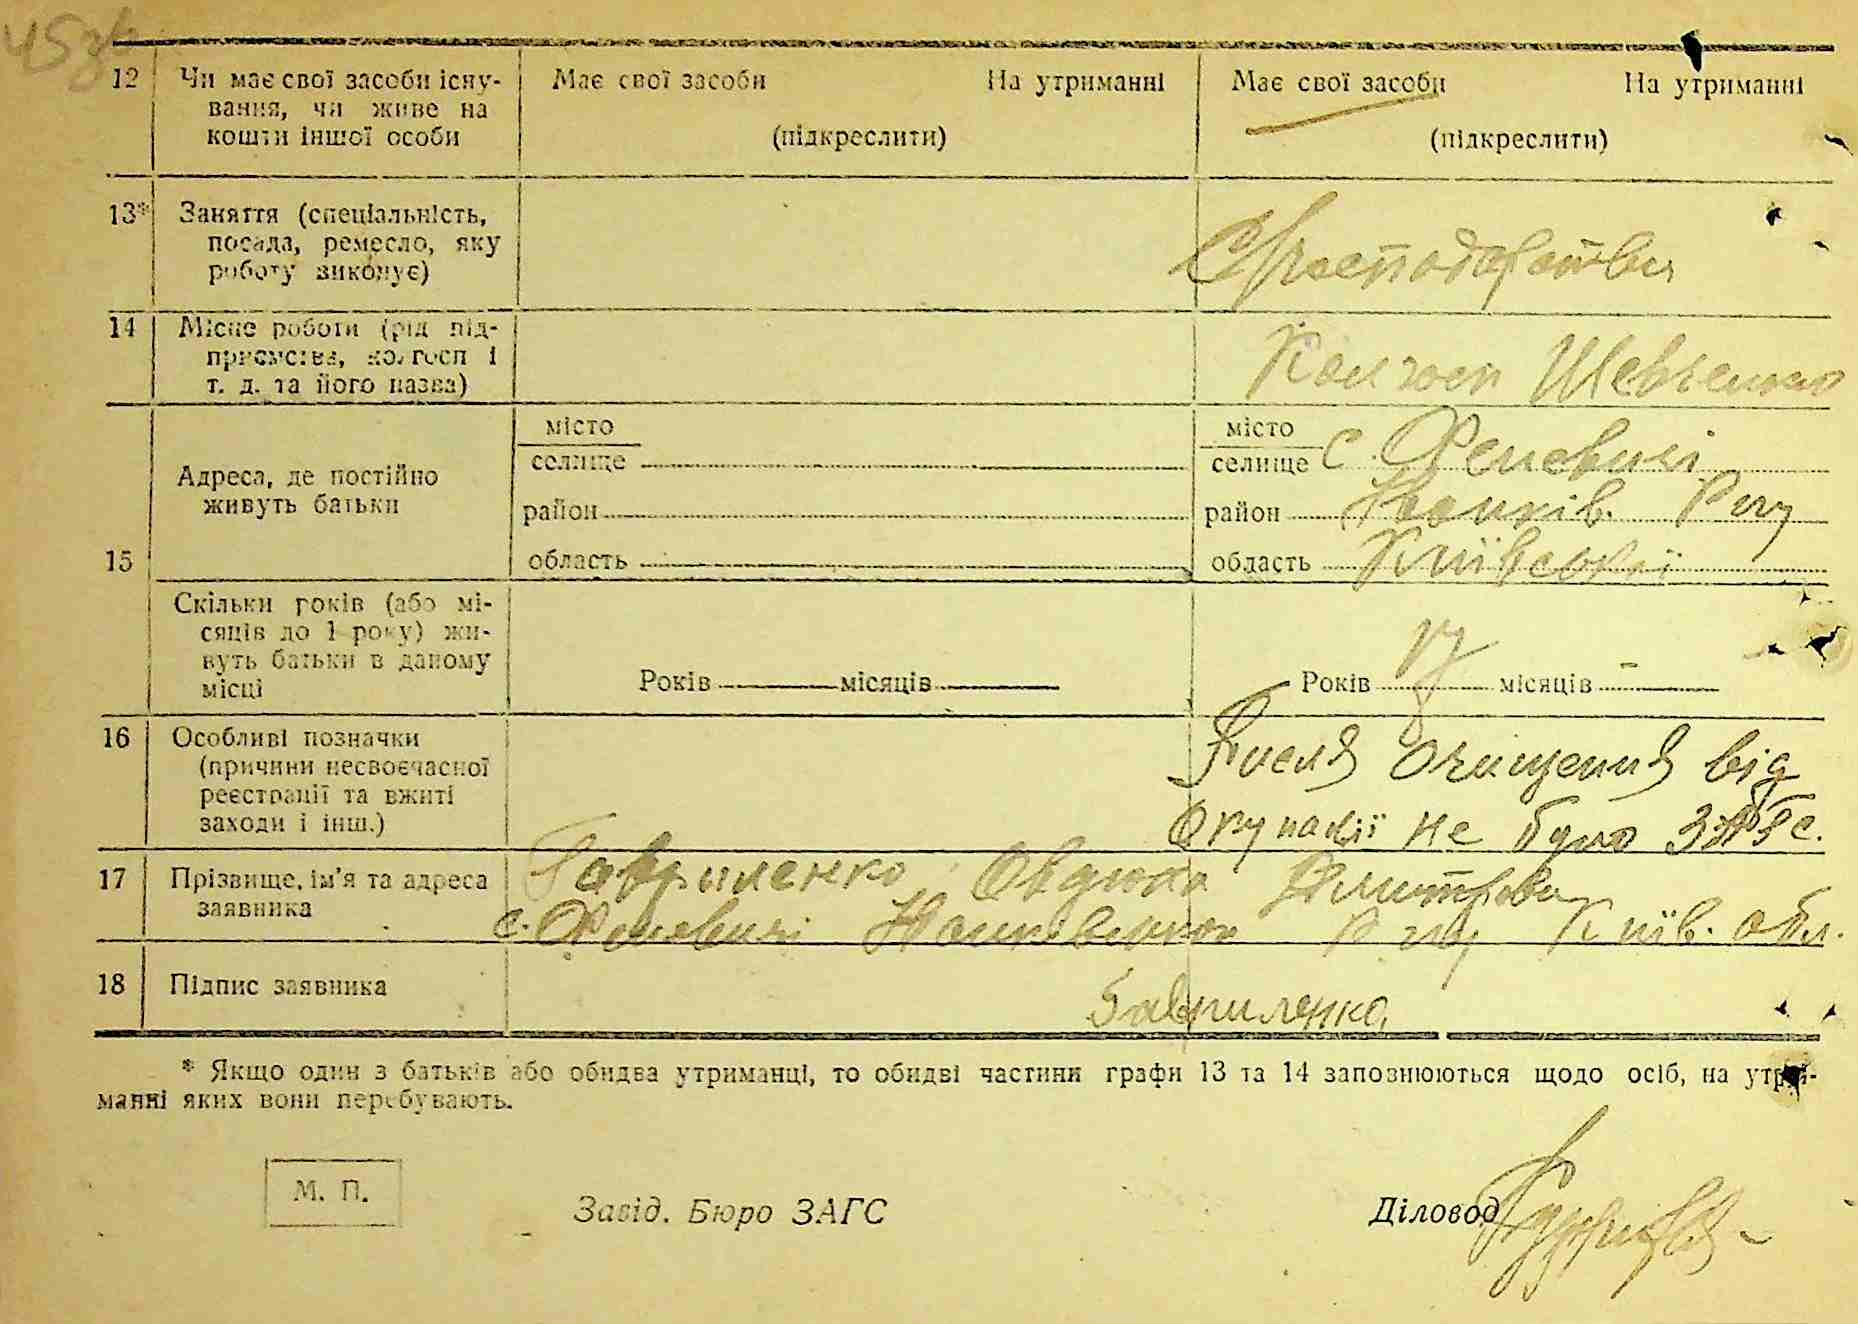 45зв
12 Чи має свої засоби існу- Має свої засоби На утриманні Має свої засоби На утриманні
вання, чи живе на
кошти іншої особи (підкреслити) (підкреслити)
13* Заняття (спеціальність,
посада, ремесло, яку
роботу виконує)
14 Місце роботи (рід під-
приємства, колгосп і Колгосп Шевченко
т. д. та його назва)
15 Адреса, де постійно
живуть батьки
місто місто
селище селище с. Феневичі
район район Іванків. Р-ну
область область Київської
Скільки років (або мі-
сяців до 1 року) жи-
вуть батьки в даному
місці
Років місяців Років місяців –
16 Особливі позначки
(причини несвоєчасної
реєстрації та вжиті
заходи і інш.)
Після очищення від
окупації не було ЗАГС.
17 Прізвище, ім'я та адреса Гавриленко Овдюха
заявника с. Феневичі Р-ну Київ. обл.
18 Підпис заявника Гавриленко
* Якщо один з батьків або обидва утриманці, то обидві частини графи 13 та 14 заповнюються щодо осіб, на утри-
манні яких вони перебувають.
М. П. Завід. Бюро ЗАГС Діловод